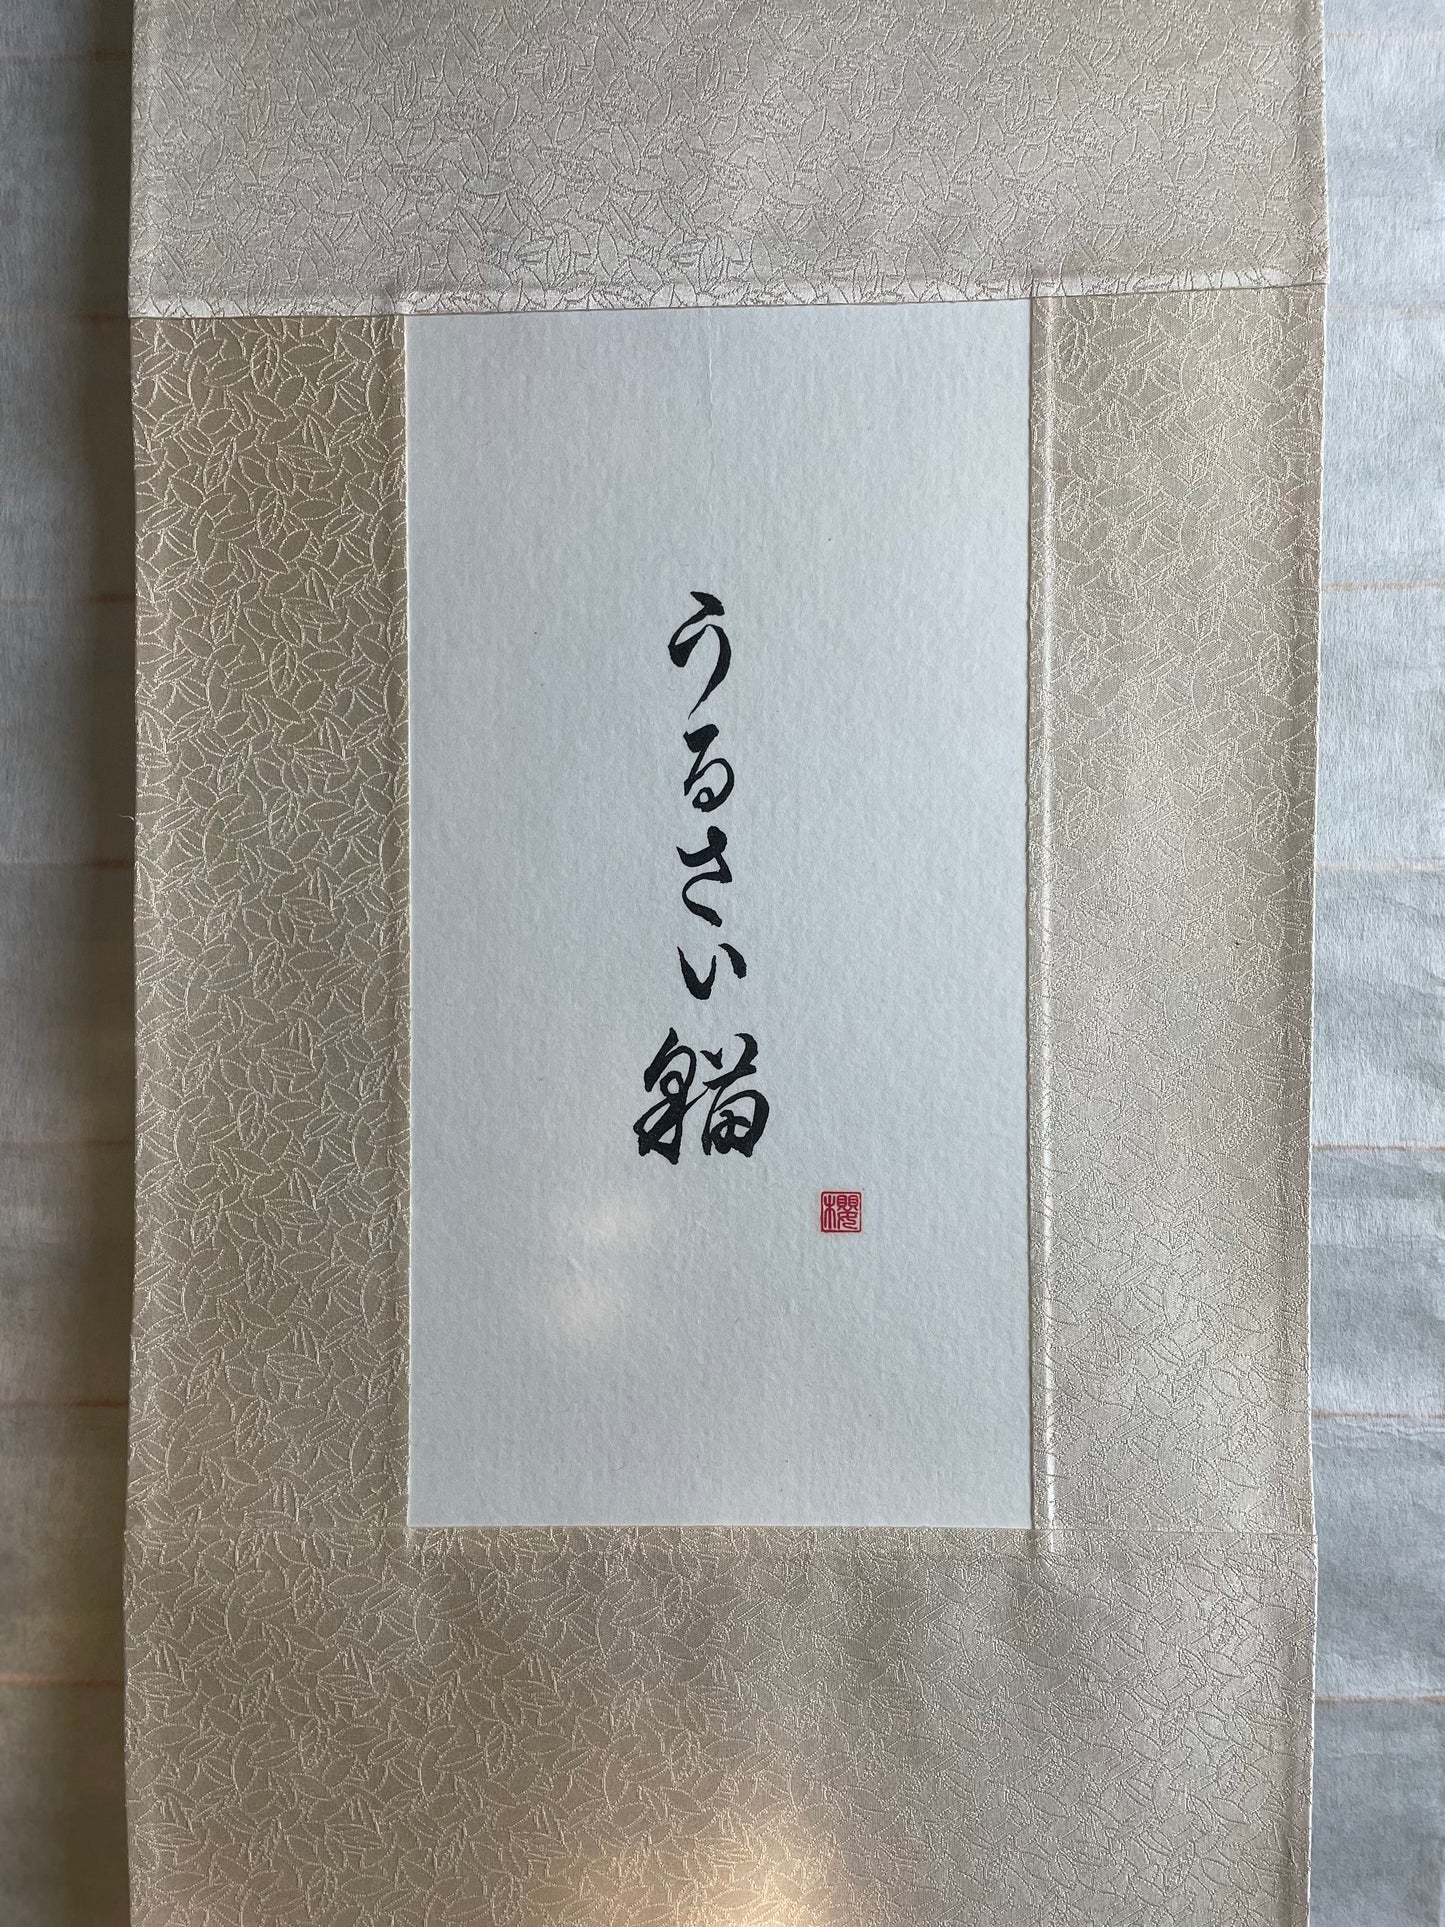 うるさい貓
櫻